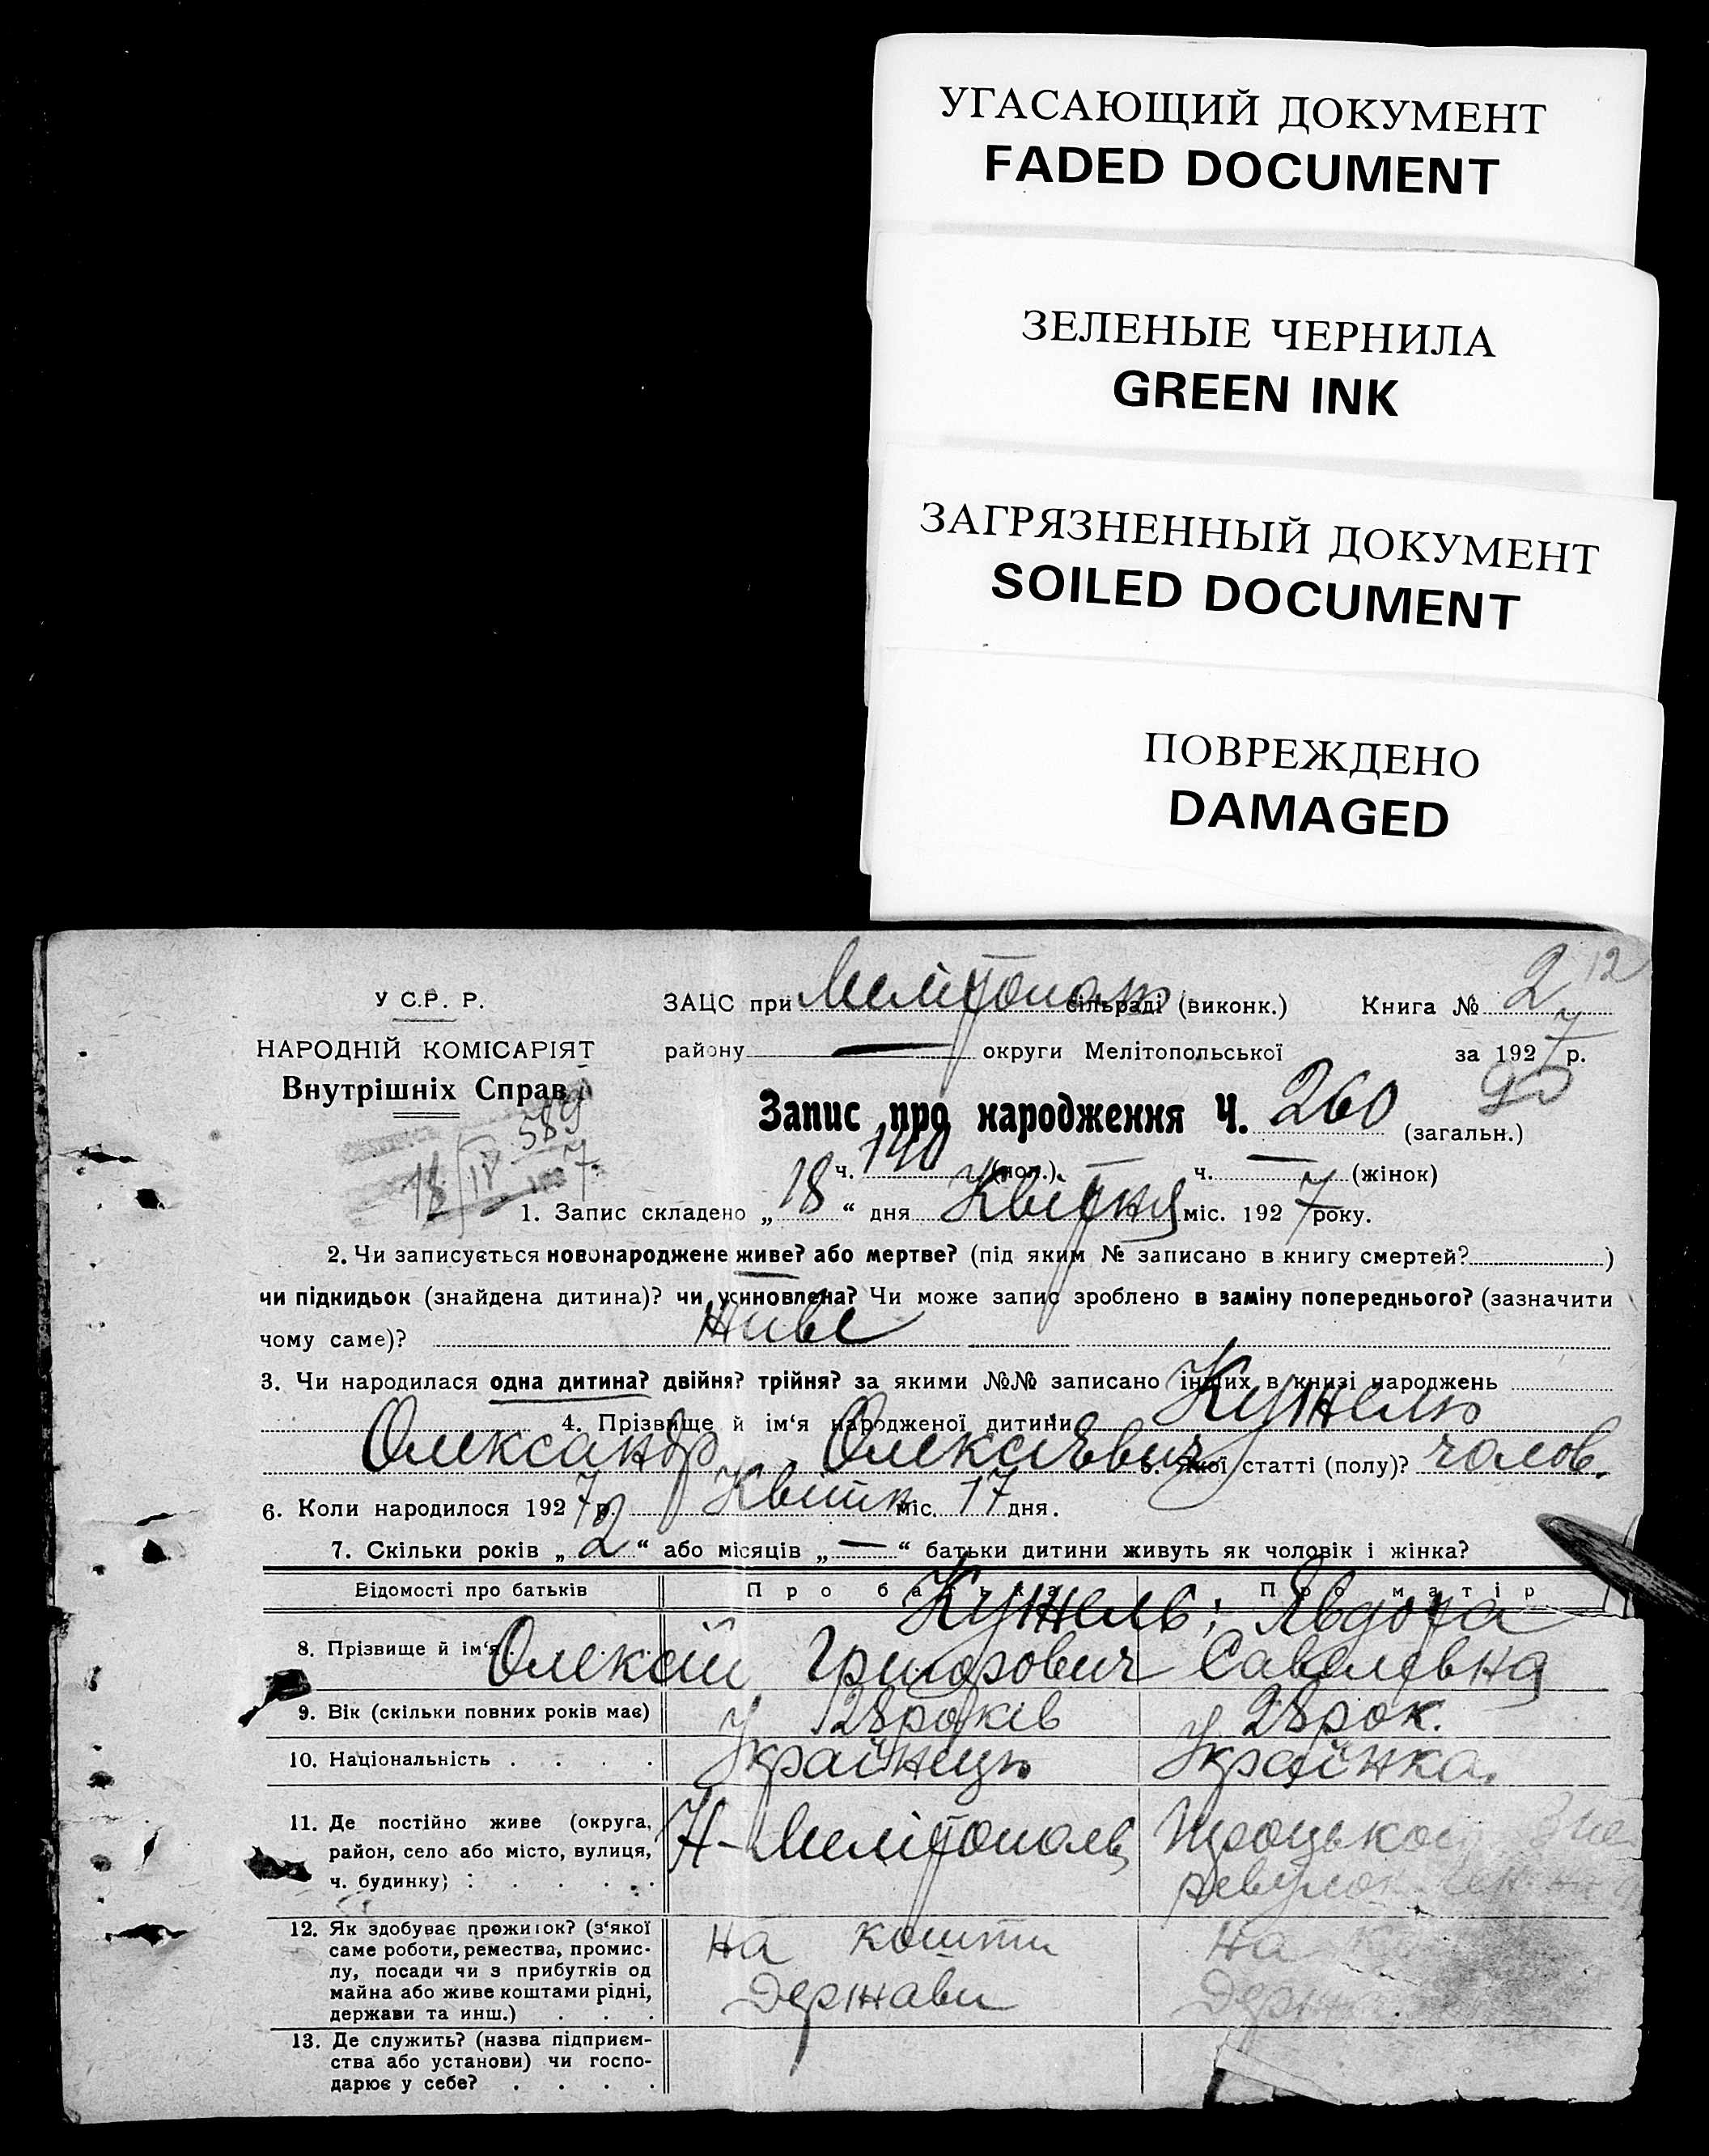 УГАСАЮЩИЙ ДОКУМЕНТ
FADED DOCUMENT
ЗЕЛЕНЫЕ ЧЕРНИЛА
GREEN INK
ЗАГРЯЗНЕННЫЙ ДОКУМЕНТ
SOILED DOCUMENT
ПОВРЕЖДЕНО
DAMAGED
12
У С.Р. Р.
ЗАЦС при Мелітополь сільраді (виконк.) Книга № 2
НАРОДНІЙ КОМІСАРІЯТ
району — округи Мелітопольської за 1927 р.
Внутрішніх Справ
Запис про народження Ч. 260 (загальн.)
589
ч. 140 (чол.) ч. — (жінок)
18/IV 1927.
1. Запис складено „18“ дня Квітня міс. 1927 року.
2. Чи записується новонароджене живе? або мертве? (під яким № записано в книгу смертей? )
чи підкидьок (знайдена дитина)? чи усиновлена? Чи може запис зроблено в заміну попереднього? (зазначити
чому саме)? Живе
3. Чи народилася одна дитина? двійня? трійня? за якими №№ записано інших в книзі народжень
4. Прізвище й ім‘я народженої дитини Кужель
Олександр Олексієвич 5. Якої статті (полу)? чолов.
6. Коли народилося 1927 р. Квітн міс. 17 дня.
7. Скільки років „2“ або місяців „—“ батьки дитини живуть як чоловік і жінка?
Відомості про батьків Про батька Про матір
Кужель; Явдоха
8. Прізвище й ім‘я Олексій Григорович Савелевна
9. Вік (скільки повних років має) 28 років 28 рок.
10. Національність . . . . Українець Українка.
11. Де постійно живе (округа,
район, село або місто, вулиця,
ч. будинку) : . . . . .
Н-Мелітополь
12. Як здобуває прожиток? (з‘якої
саме роботи, ремества, промис-
лу, посади чи з прибутків од
майна або живе коштами рідні,
держави та инш.) . . .
на кошти
Держави
на
13. Де служить? (назва підприєм-
ства або установи) чи госпо-
дарює у себе? . . . .